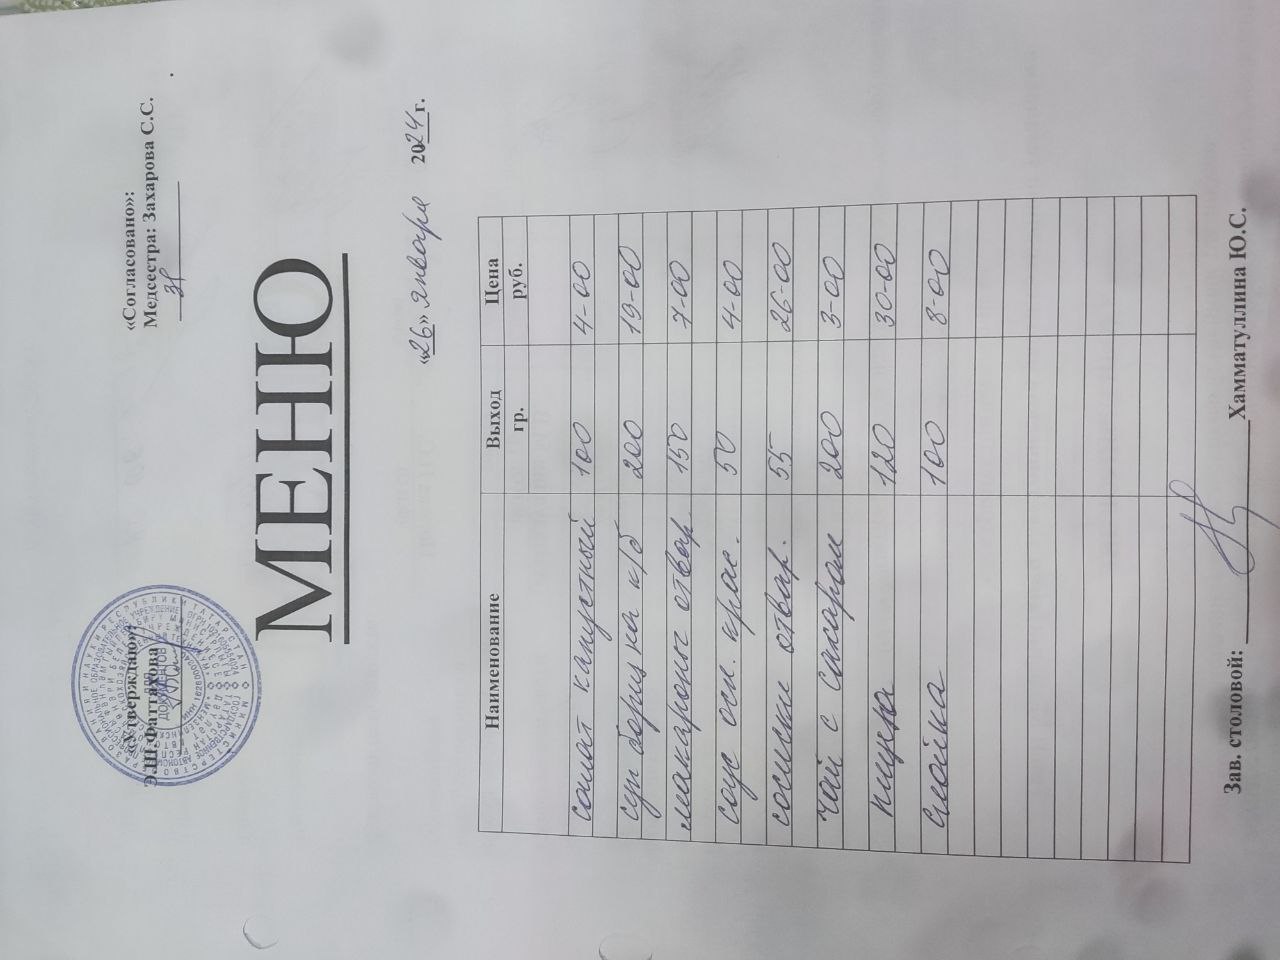 «Утверждаю»:
Э.Ш.Фаттахова
«Согласовано»:
Медсестра: Захарова С.С.
МЕНЮ
«26» января 2024г.
Наименование Выход гр. Цена руб.
салат капустный 100 4-00
суп борщ на к/б 200 19-00
макароны отвар. 150 7-00
соус осн. крас. 50 4-00
сосиски отвар. 55 26-00
чай с сахаром 200 3-00
пицца 120 30-00
слойка 100 8-00
Зав. столовой: Хамматуллина Ю.С.